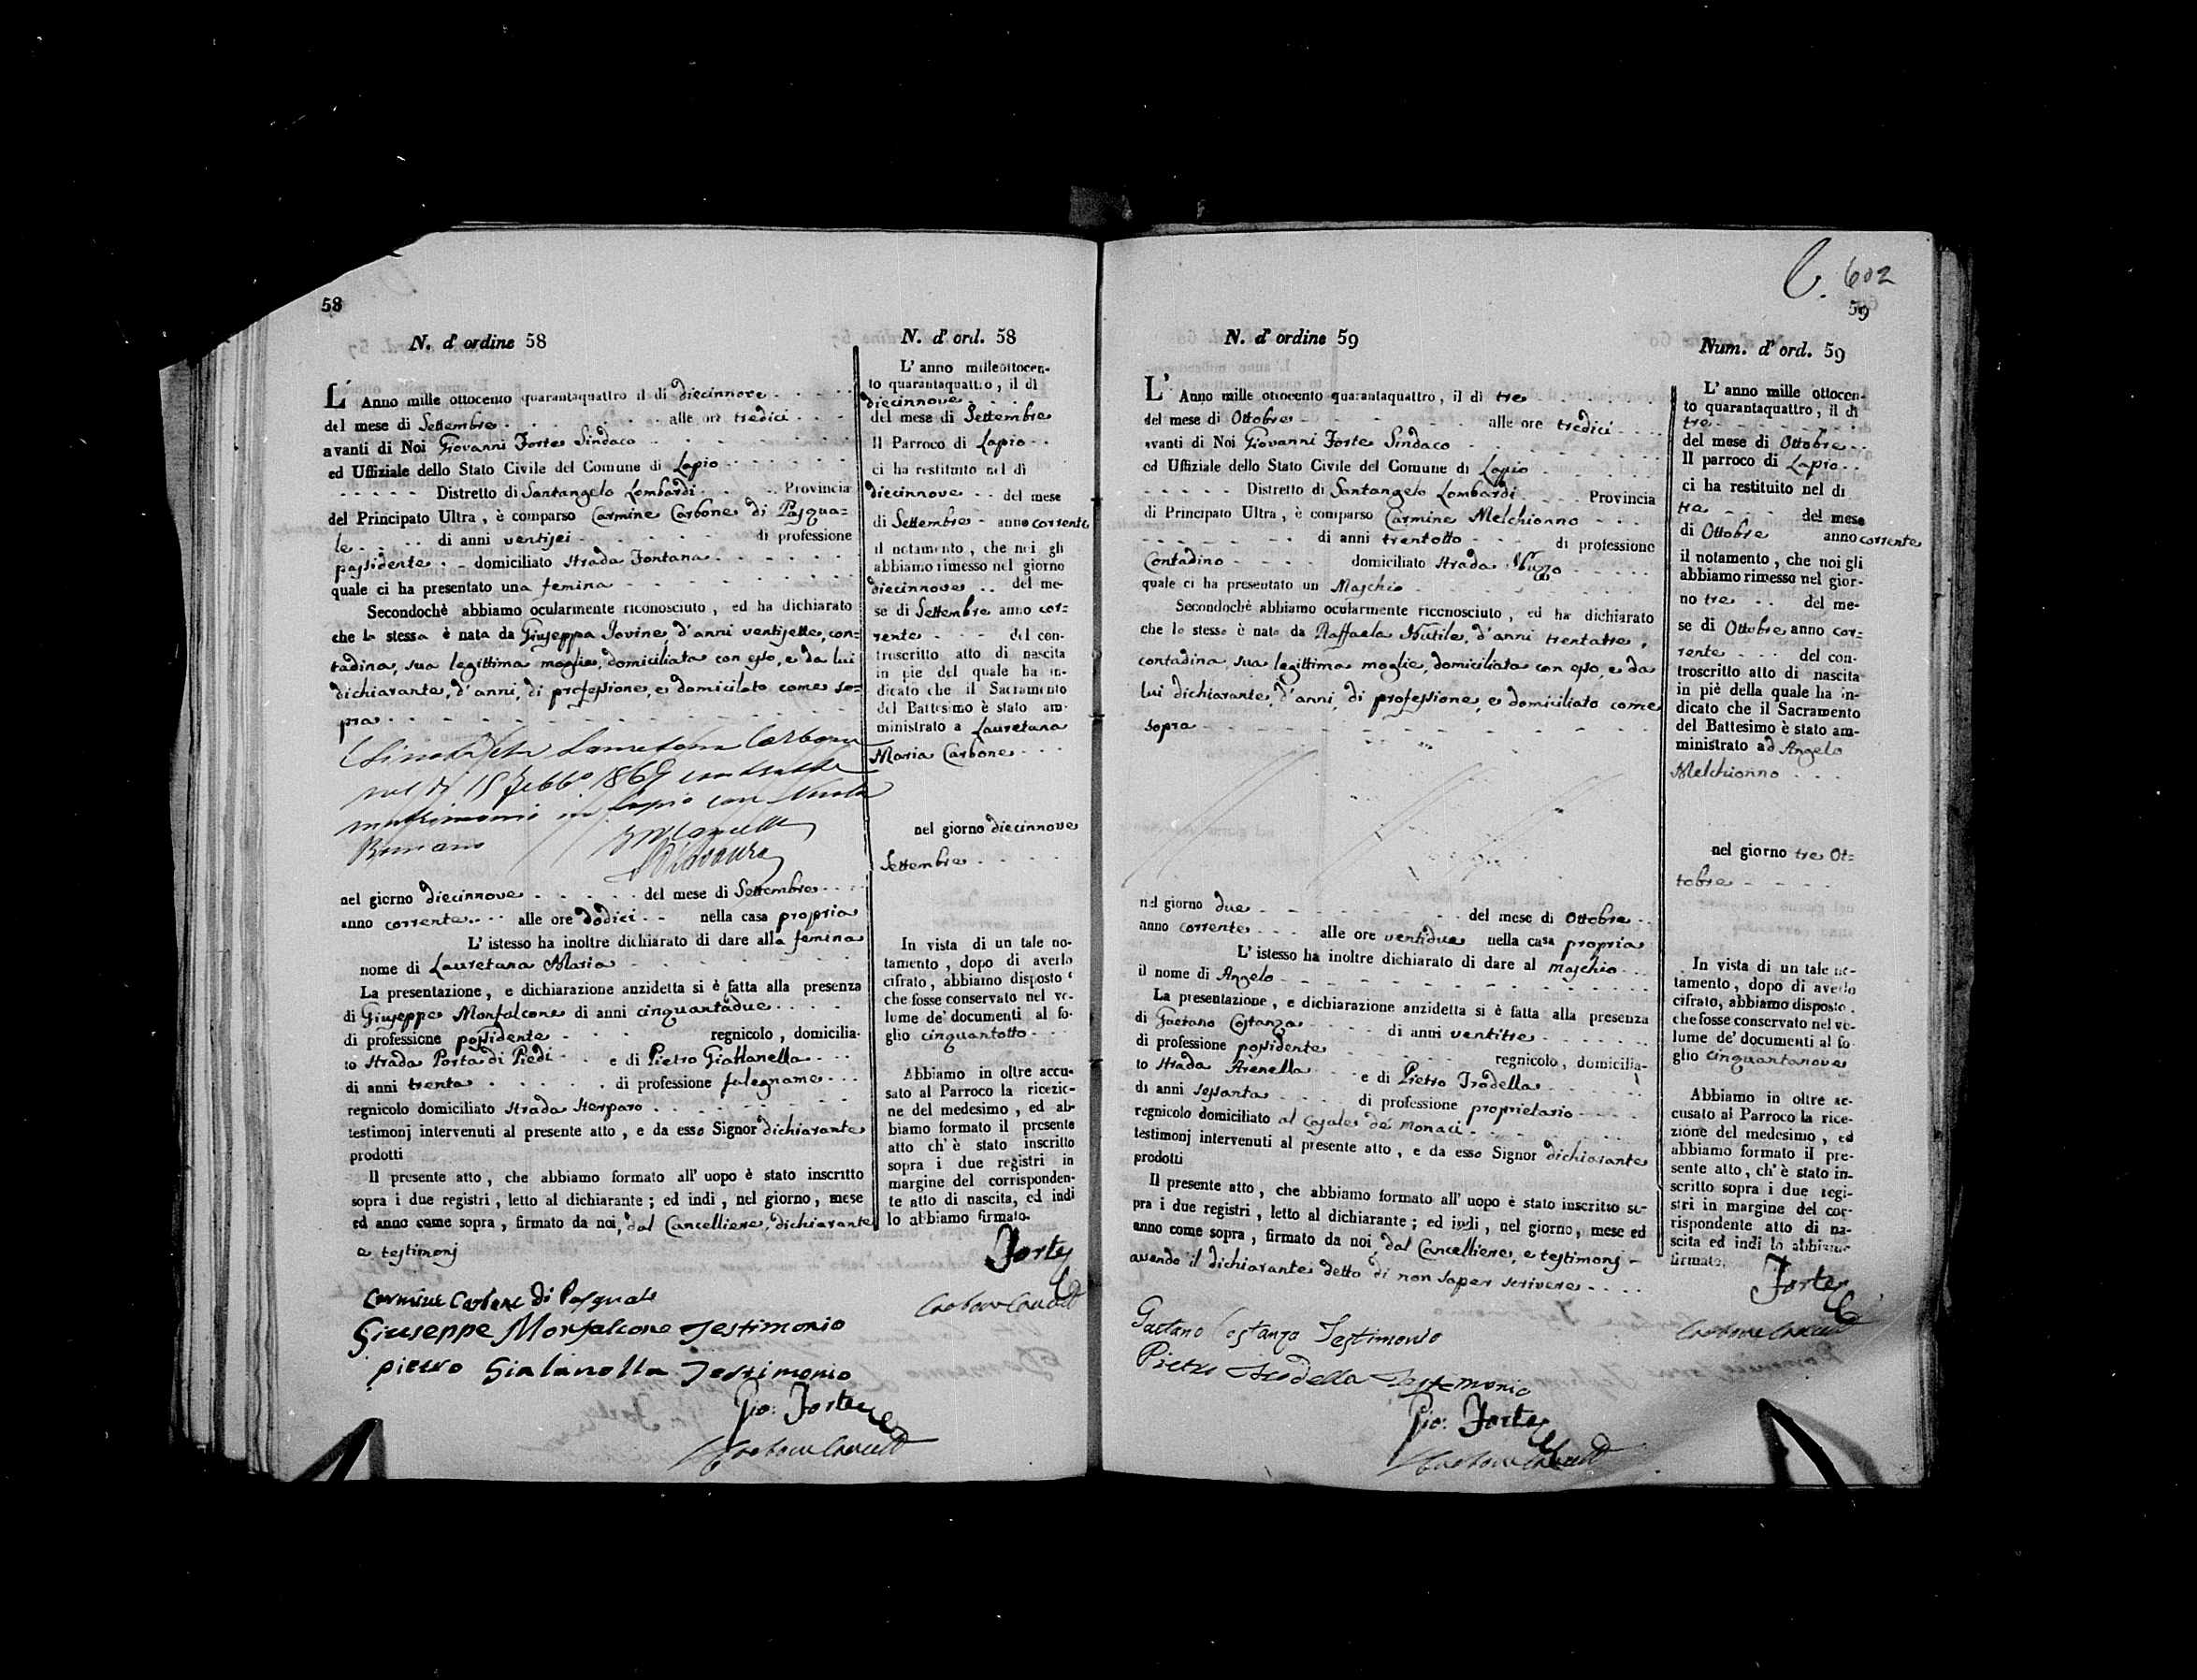 58
N. d' ordine 58
L' Anno mille ottocento quarantaquattro il dì diecinnove
del mese di Settembre alle ore tredici
avanti di Noi Giovanni Forte Sindaco
ed Uffiziale dello Stato Civile del Comune di Lapio
Distretto di Santangelo Lombardi Provincia
del Principato Ultra, è comparso Carmine Carbone di Pasqua=
le di anni ventisei di professione
possidente domiciliato Strada Fontana
quale ci ha presentato una femina
Secondochè abbiamo ocularmente riconosciuto, ed ha dichiarato
che la stessa è nata da Giuseppa Iovine, d'anni ventisette, con=
tadina, sua legittima moglie, domiciliata con esso, e da lui
dichiarante, d'anni, di professione, e domicilato come so=
pra
Lauretana Carbone
nel dì 15 Febb.o 1869
matrimonio in Lapio con
Romano
nel giorno diecinnove del mese di Settembre
anno corrente alle ore dodici nella casa propria
L' istesso ha inoltre dichiarato di dare alla femina
nome di Lauretana Maria
La presentazione, e dichiarazione anzidetta si è fatta alla presenza
di Giuseppe Monfalcone di anni cinquantadue
di professione possidente regnicolo, domicilia-
to Strada Porta di Piedi e di Pietro Giallanella
di anni trenta di professione falegname
regnicolo domiciliato Strada
testimonj intervenuti al presente atto, e da esso Signor dichiarante
prodotti
Il presente atto, che abbiamo formato all' uopo è stato inscritto
sopra i due registri, letto al dichiarante; ed indi, nel giorno, mese
ed anno come sopra, firmato da noi, dal Cancelliere, dichiarante
e testimonj
Carmine Carbone di Pasquale
Giuseppe Monfalcone Testimonio
pietro Gialanella Testimonio
Gio: Forte
N. d' ord. 58
L' anno milleottocen-
to quarantaquattro, il dì
diecinnove
del mese di Settembre
Il Parroco di Lapio
ci ha restituito nel dì
diecinnove del mese
di Settembre anno corrente
il notamento, che noi gli
abbiamo rimesso nel giorno
diecinnove del me-
se di Settembre anno cor=
rente del con-
troscritto atto di nascita
in pie del quale ha in-
dicato che il Sacramento
del Battesimo è stato am-
ministrato a Lauretana
Maria Carbone
nel giorno diecinnove
Settembre
In vista di un tale no-
tamento, dopo di averlo
cifrato, abbiamo disposto
che fosse conservato nel vo-
lume de' documenti al fo-
glio cinquantotto
Abbiamo in oltre accu-
sato al Parroco la ricezio-
ne del medesimo, ed ab-
biamo formato il presente
atto ch' è stato inscritto
sopra i due registri in
margine del corrisponden-
te atto di nascita, ed indi
lo abbiamo firmato.
Forte
602
59
N. d' ordine 59
L' Anno mille ottocento quarantaquattro, il dì tre
del mese di Ottobre alle ore tredici
avanti di Noi Giovanni Forte Sindaco
ed Uffiziale dello Stato Civile del Comune di Lapio
Distretto di Santangelo Lombardi Provincia
di Principato Ultra, è comparso Carmine Melchionno
di anni trentotto di professione
Contadino domiciliato Strada
quale ci ha presentato un Maschio
Secondochè abbiamo ocularmente riconosciuto, ed ha dichiarato
che lo stesso è nato da Raffaela Nutile, d'anni trentatre,
contadina, sua legittima moglie, domiciliata con esso, e da
lui dichiarante, d'anni, di professione, e domiciliato come
sopra
nel giorno due del mese di Ottobre
anno corrente alle ore ventidue nella casa propria
L' istesso ha inoltre dichiarato di dare al maschio
il nome di Angelo
La presentazione, e dichiarazione anzidetta si è fatta alla presenza
di Gaetano Costanzo di anni ventitre
di professione possidente regnicolo, domicilia-
to Strada Arenella e di Pietro Trodella
di anni sessanta di professione proprietario
regnicolo domiciliato al Casale de' monaci
testimonj intervenuti al presente atto, e da esso Signor dichiarante
prodotti
Il presente atto, che abbiamo formato all' uopo è stato inscritto so-
pra i due registri, letto al dichiarante; ed indi, nel giorno, mese ed
anno come sopra, firmato da noi, dal Cancelliere, e testimonj
avendo il dichiarante detto di non saper scrivere
Gaetano Costanzo Testimonio
Pietro Trodella Testimonio
Gio: Forte
Num. d' ord. 59
L' anno mille ottocen-
to quarantaquattro, il dì
tre
del mese di Ottobre
Il parroco di Lapio
ci ha restituito nel di
tre del mese
di Ottobre anno corrente
il notamento, che noi gli
abbiamo rimesso nel gior-
no tre del me-
se di Ottobre anno cor=
rente del con-
troscritto atto di nascita
in piè della quale ha in-
dicato che il Sacramento
del Battesimo è stato am-
ministrato ad Angelo
Melchionno
nel giorno tre Ot=
tobre
In vista di un tale no-
tamento, dopo di averlo
cifrato, abbiamo disposto
che fosse conservato nel vo-
lume de' documenti al fo-
glio cinquantanove
Abbiamo in oltre ac-
cusato al Parroco la rice-
zione del medesimo, ed
abbiamo formato il pre-
sente atto, ch' è stato in-
scritto sopra i due regi-
stri in margine del cor-
rispondente atto di na-
scita ed indi lo abbiamo
firmato.
Forte